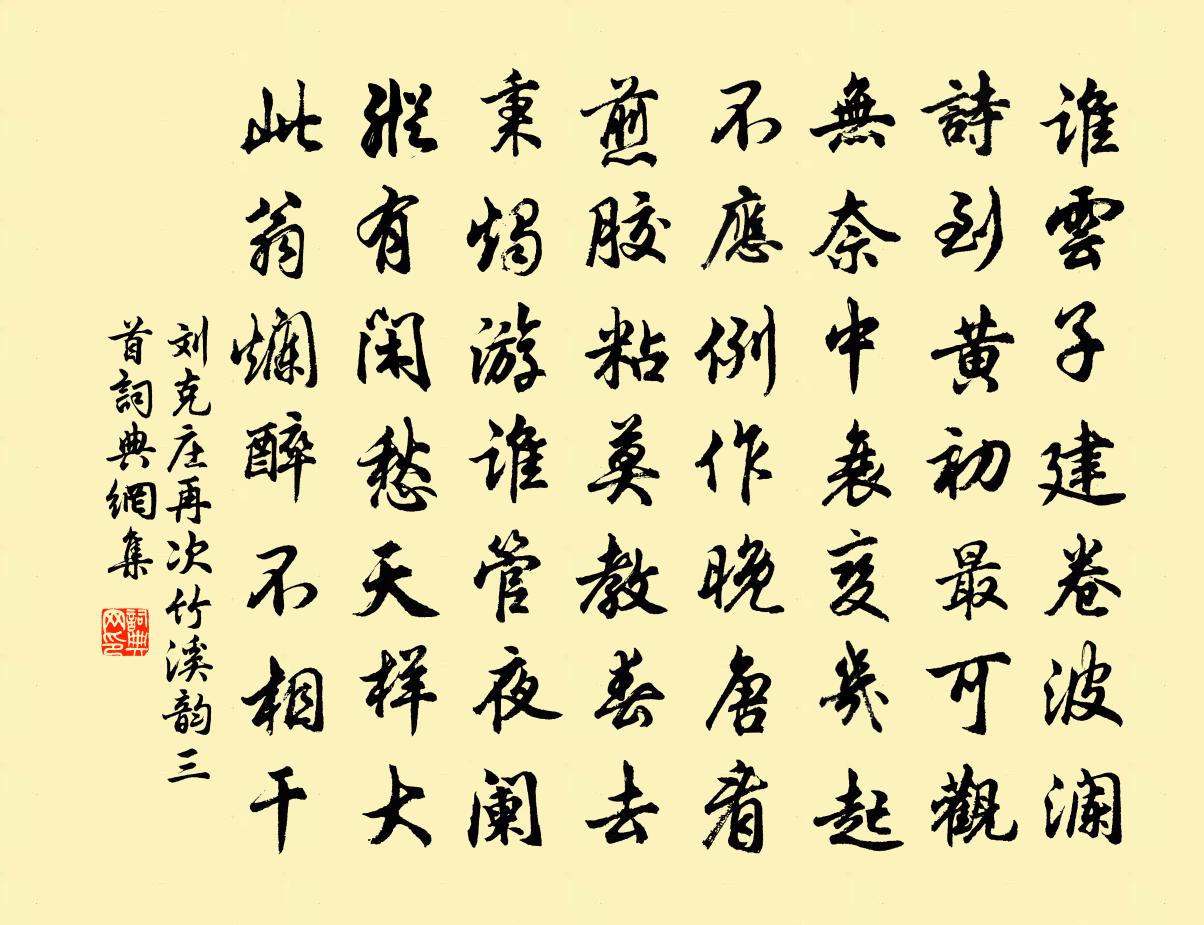 谁雲子建卷波澜
詩到黄初最可觀
無奈中衰变幾起
不應例作晚唐看
煎胶粘莫教春去
秉燭游谁管夜阑
縱有闲愁天样大
此翁爛醉不相干
刘克庄再次竹溪韵三
首詞典網集
詞典
网印